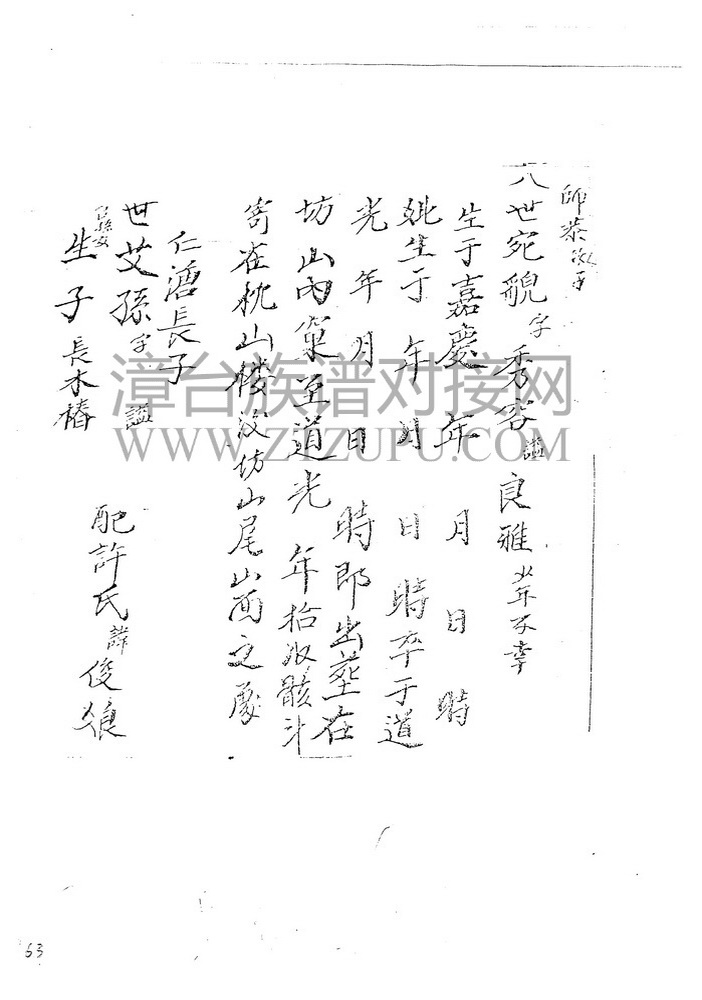 師恭次子
八世宛貌字秀容謚良雅少年不幸
生于嘉慶年月日時
妣生于年月日時卒于道
光年月日時即出塟在
坊山内窠至道光年拾收骸斗
寄在枕山楼後坊山尾山面之處
仁酒長子
世艾孫字謚配許氏諱俊娘
生子長木椿
漳台族谱对接网
WWW.ZTZUPU.COM
63